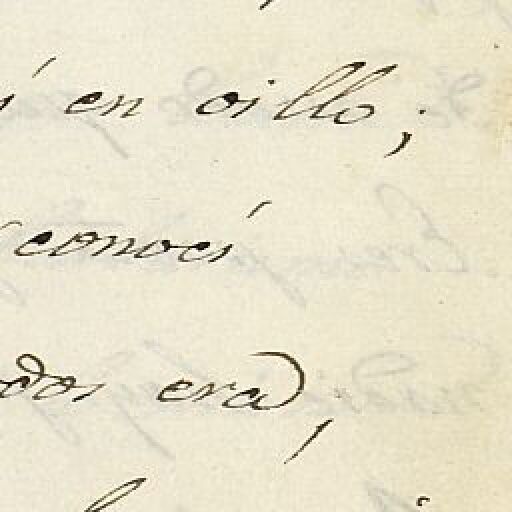 í en oillo;
conocí
dos era,